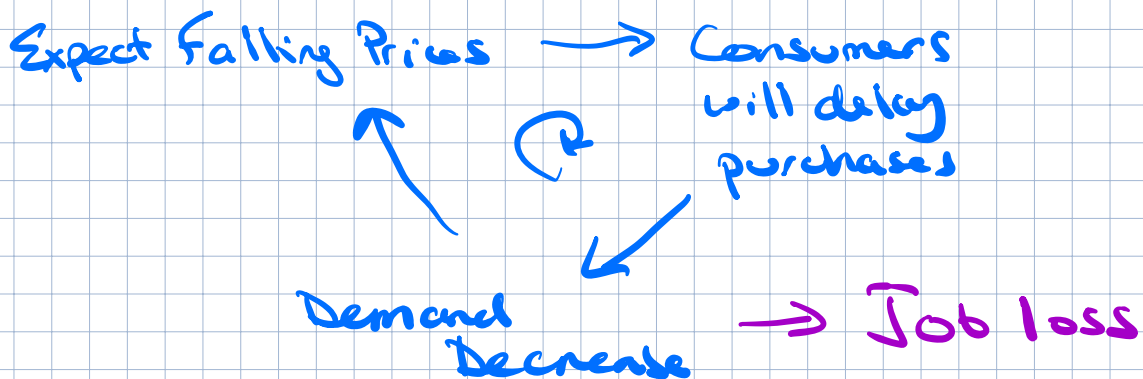 Expect Falling Prices → Consumers
will delay
purchases
Demand
Decrease → Job loss